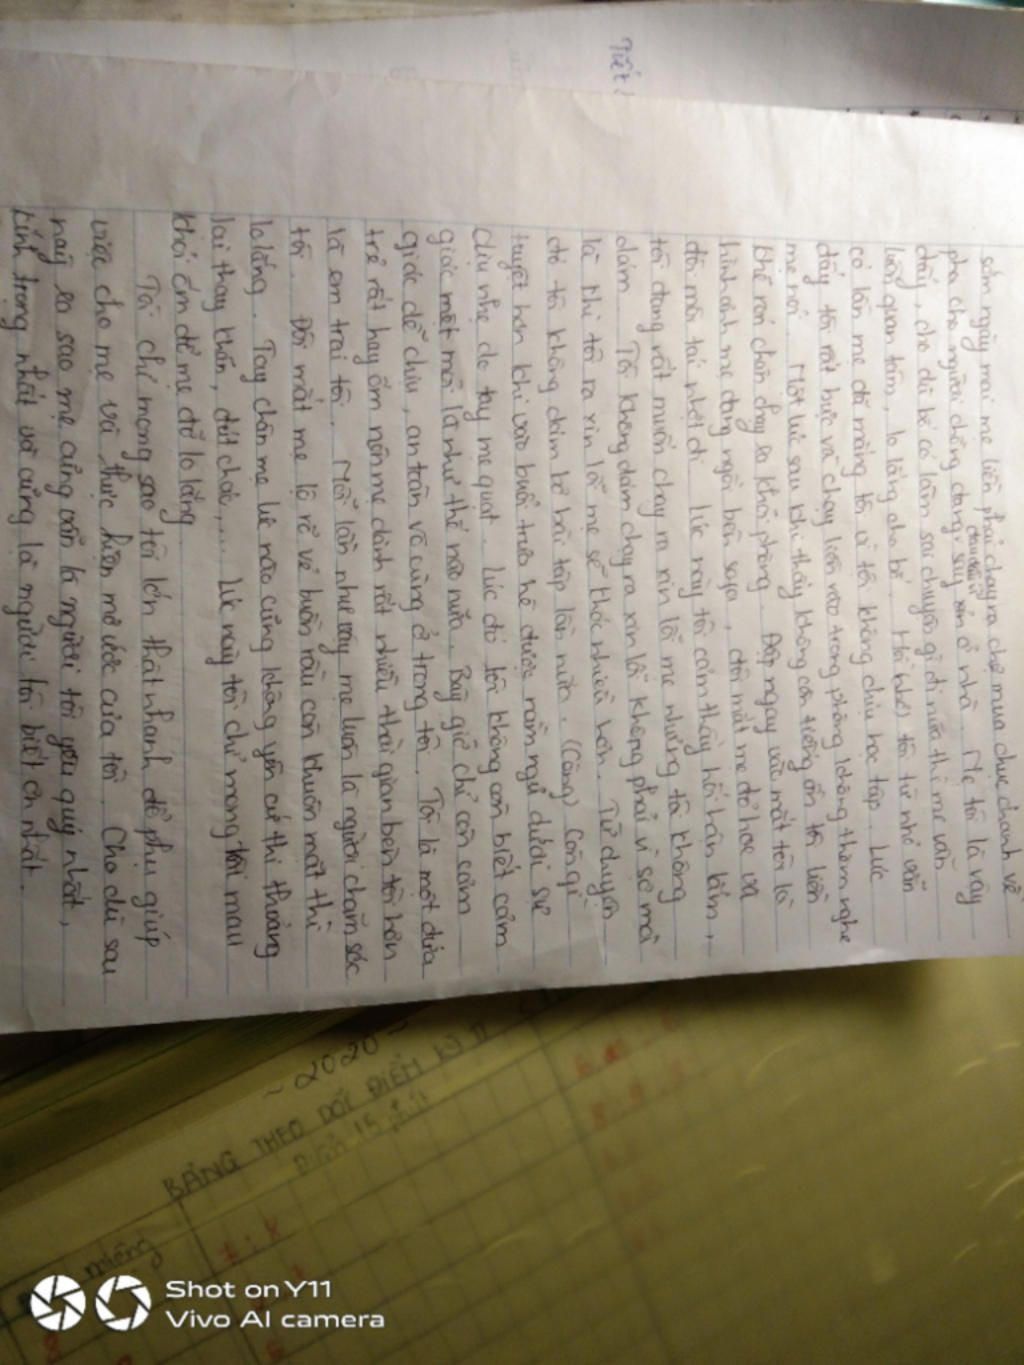 sớm ngày mai mẹ liền phải chạy ra chợ mua chục chanh về
pha cho người chồng đang say xỉn ở nhà. Mẹ tôi là vậy
đau đầu
đấy, cho dù bố có làm sai chuyện gì đi nữa thì mẹ vẫn
luôn quan tâm, lo lắng cho bố. Hồi nhỏ, tôi từ nhỏ vẫn
có lần mẹ đã mắng tôi vì tôi không chịu học tập. Lúc
đấy tôi rất bực và chạy liền vào trong phòng không thèm nghe
mẹ nói. Một lúc sau khi thấy không còn tiếng ồn tôi liền
khẽ rón chân chạy ra khỏi phòng. Đập ngay vào mắt tôi là
hình ảnh mẹ đang ngồi bên sopa, đôi mắt mẹ đỏ hoe và
đôi môi tái nhợt đi. Lúc này tôi cảm thấy hối hận lắm,
tôi đang rất muốn chạy ra xin lỗi mẹ nhưng tôi không
dám. Tôi không dám chạy ra xin lỗi không phải vì sợ mà
là khi tôi ra xin lỗi mẹ sẽ khóc nhiều hơn. Từ chuyện
đó tôi không dám bỏ bài tập lần nữa. (Công) Còn gì
tuyệt hơn khi vào buổi trưa hè được nằm ngủ dưới sự
dịu nhẹ do tay mẹ quạt. Lúc đó tôi không còn biết cảm
giác mệt mỏi là như thế nào nữa. Bây giờ chỉ còn cảm
giác dễ chịu, an toàn vô cùng ở trong tôi. Tôi là một đứa
trẻ rất hay ốm nên mẹ dành rất nhiều thời gian bên tôi hơn
là em trai tôi. Mỗi lần như vậy mẹ luôn là người chăm sóc
tôi. Đôi mắt mẹ lộ rõ vẻ buồn rầu còn khuôn mặt thì
lo lắng. Tay chân mẹ lúc nào cũng không yên cứ thi thoảng
lại thay khăn, đút cháo,... Lúc này tôi chỉ mong tôi mau
khỏi ốm để mẹ đỡ lo lắng
Tôi chỉ mong sao tôi lớn thật nhanh để phụ giúp
việc cho mẹ và thực hiện mơ ước của tôi. Cho dù sau
này ra sao mẹ cũng vẫn là người tôi yêu quý nhất,
kính trọng nhất và cũng là người tôi biết ơn nhất.
Tiết
~ 2020 ~
BẢNG THEO DÕI ĐIỂM KỲ II
miệng
Điểm 15 phút
Shot on Y11
Vivo AI camera